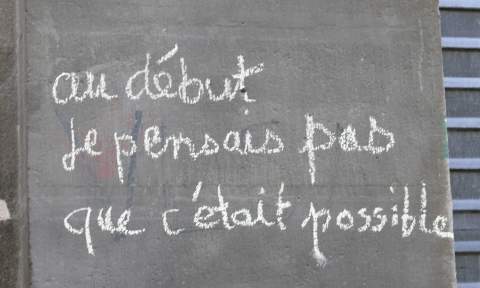 au début
je pensais pas
que c'était possible